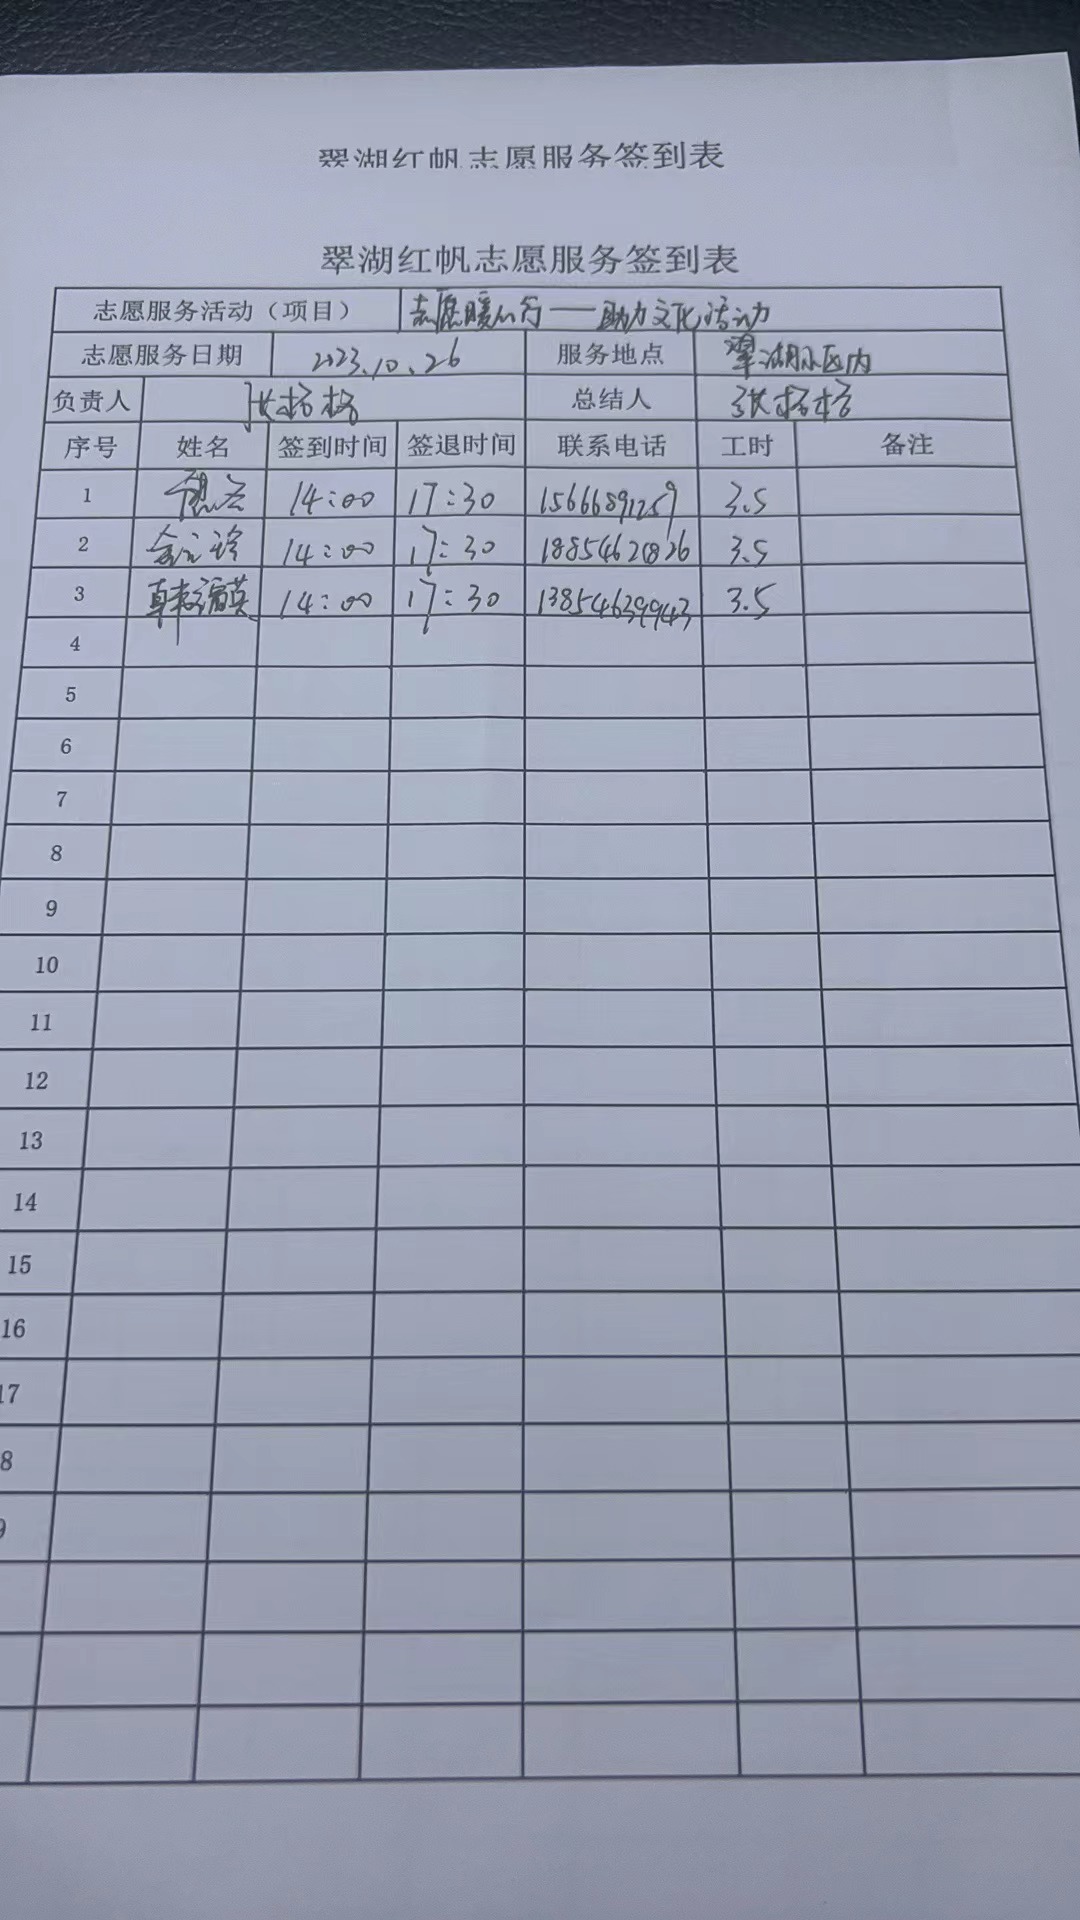 翠湖红帆志愿服务签到表
翠湖红帆志愿服务签到表
志愿服务活动（项目） 志愿暖心行——助力文化活动
志愿服务日期 2023.10.26 服务地点 翠湖小区内
负责人 张杨格 总结人 张杨格
序号 姓名 签到时间 签退时间 联系电话 工时 备注
1 14:00 17:30 15666891259 3.5
2 14:00 17:30 3.5
3 韩福英 14:00 17:30 13854639943 3.5
4
5
6
7
8
9
10
11
12
13
14
15
16
17
8
9